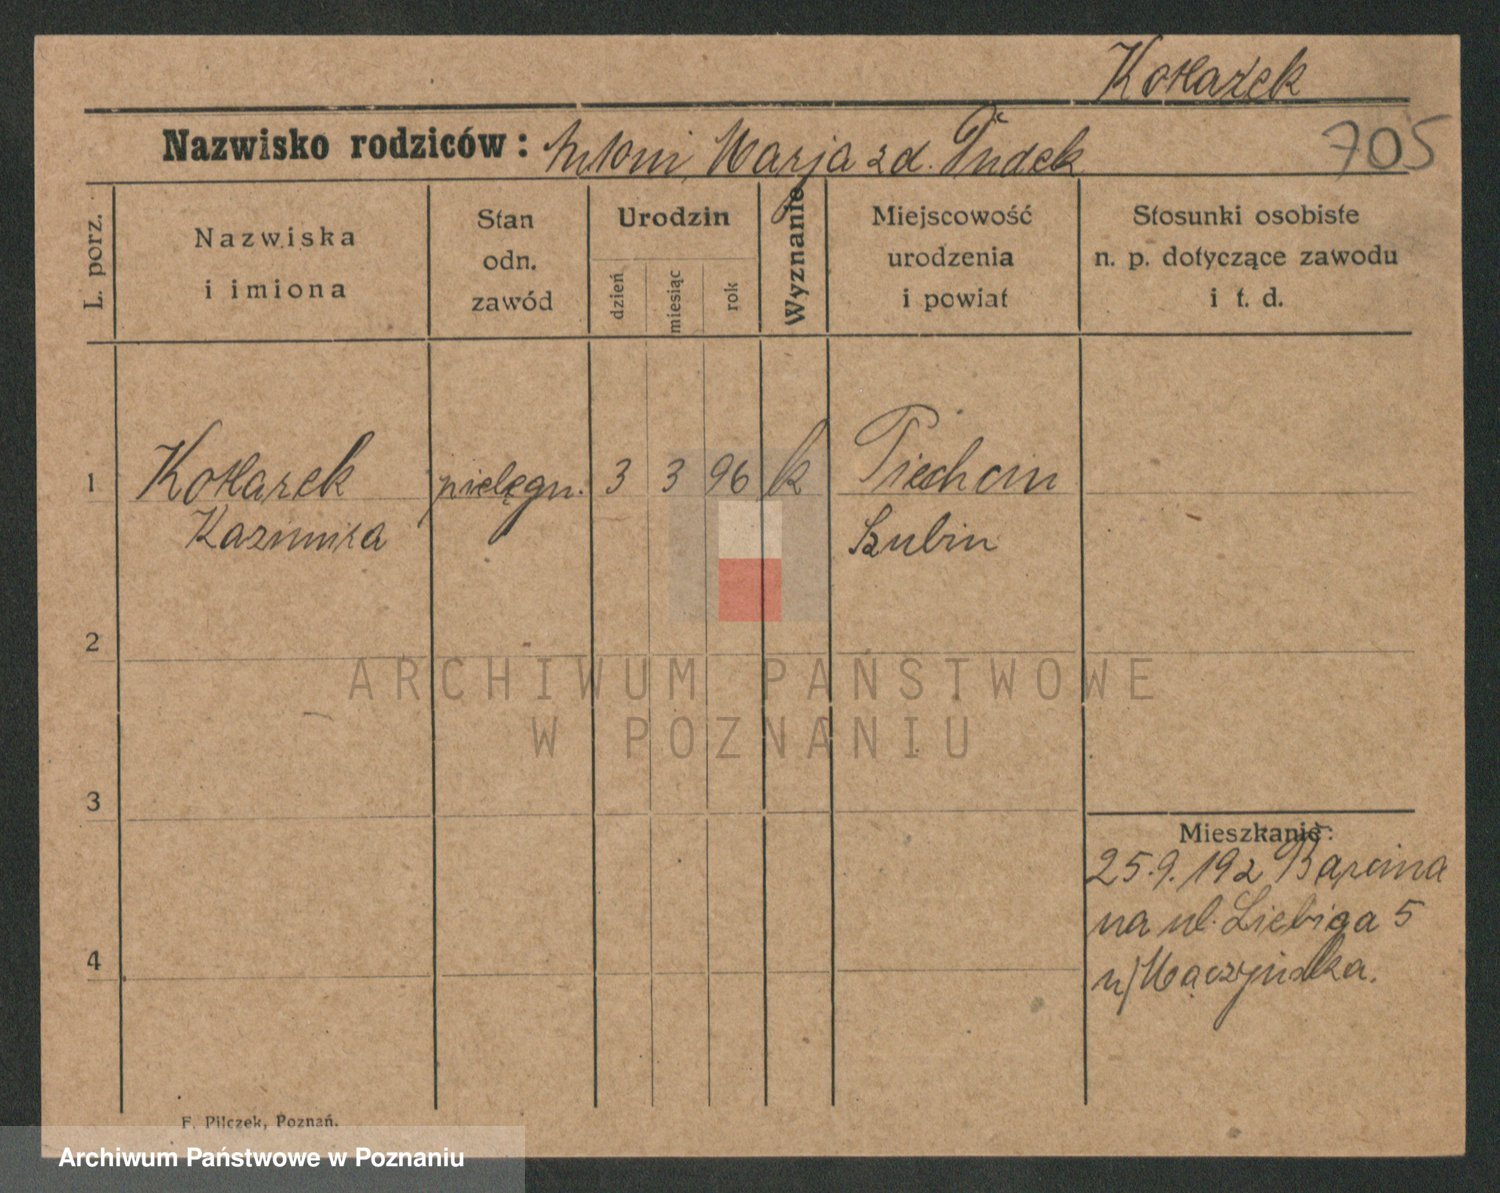 Kotlarek
705
Nazwisko rodziców: Antoni, Marja zd. Dudek
L. porz.
Nazwiska
i imiona
Stan
odn.
zawód
Urodzin
dzień
miesiąc
rok
Wyznanie
Miejscowość
urodzenia
i powiat
Stosunki osobiste
n. p. dotyczące zawodu
i t. d.
1
Kotlarek
Kazimira
pielęgn.
3
3
96
k
Piechcin
Szubin
2
3
4
Mieszkanie:
25.9.192 Barcina
na ul. Liebiga 5
u/
F. Pilczek, Poznań.
ARCHIWUM PAŃSTWOWE
W POZNANIU
Archiwum Państwowe w Poznaniu